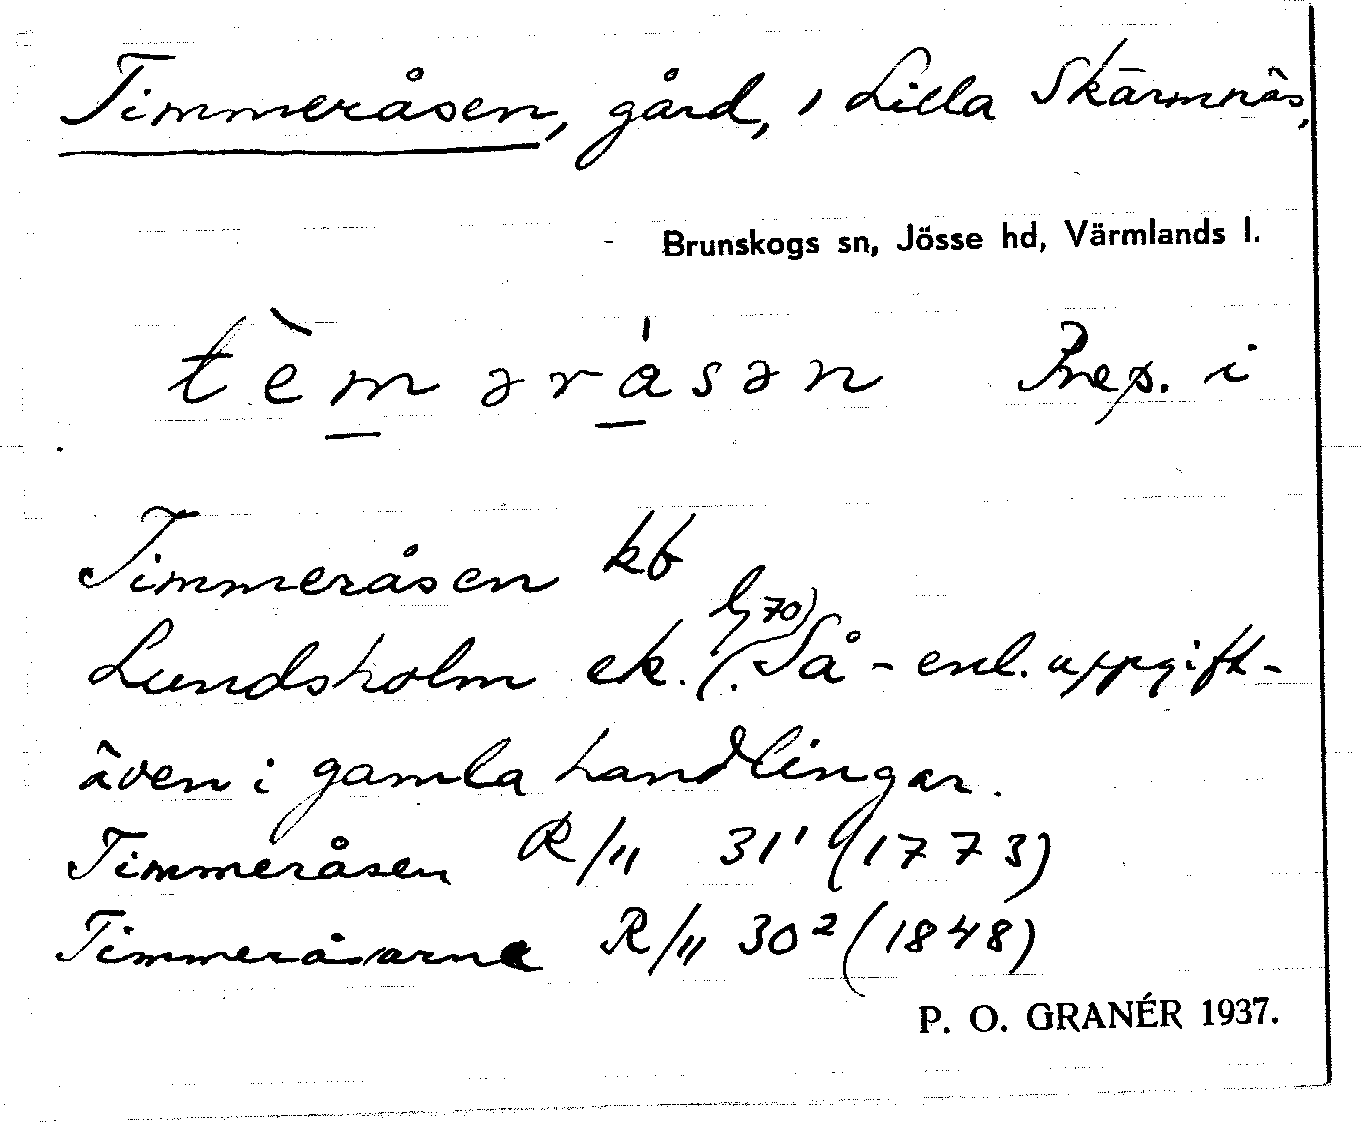 Timmeråsen, gård, i Lilla Skärmnäs,
Brunskogs sn, Jösse hd, Värmlands l.
tèmərásən Prep. i
Timmeråsen kb
Lundsholm ek. (70) Så - enl. uppgift -
även i gamla handlingar.
Timmeråsen R/11 31¹ (1773)
Timmeråsarne R/11 30² (1848)
P. O. GRANÉR 1937.